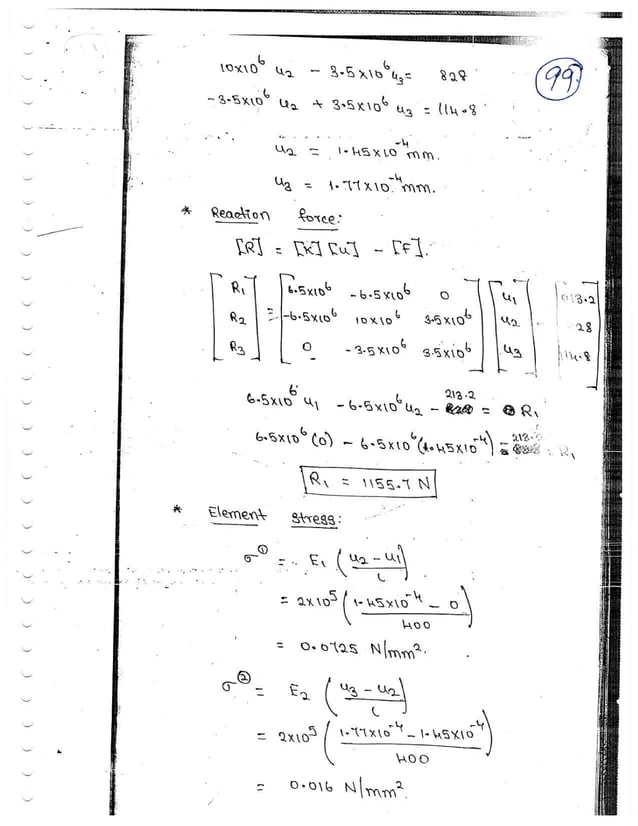 99.
10×10⁶ u₂ - 3.5×10⁶ u₃ = 828
-3.5×10⁶ u₂ + 3.5×10⁶ u₃ = 114.8
u₂ = 1.45×10⁻⁴ mm.
u₃ = 1.77×10⁻⁴ mm.
* Reaction force:
[R] = [K] [u] - [F].
[R₁ R₂ R₃] = [6.5×10⁶ -6.5×10⁶ 0
-6.5×10⁶ 10×10⁶ 3.5×10⁶
0 -3.5×10⁶ 3.5×10⁶] [u₁ u₂ u₃] - [13.2 28 114.8]
213.2
6.5×10⁶ u₁ - 6.5×10⁶ u₂ - = R₁
6.5×10⁶ (0) - 6.5×10⁶ (1.45×10⁻⁴) - 213. = R₁
R₁ = 1155.7 N
* Element stress:
σ① = E₁ ( u₂ - u₁ / L )
= 2×10⁵ ( 1.45×10⁻⁴ - 0 / 400 )
= 0.0725 N/mm².
σ② = E₂ ( u₃ - u₂ / L )
= 2×10⁵ ( 1.77×10⁻⁴ - 1.45×10⁻⁴ / 400 )
= 0.016 N/mm²